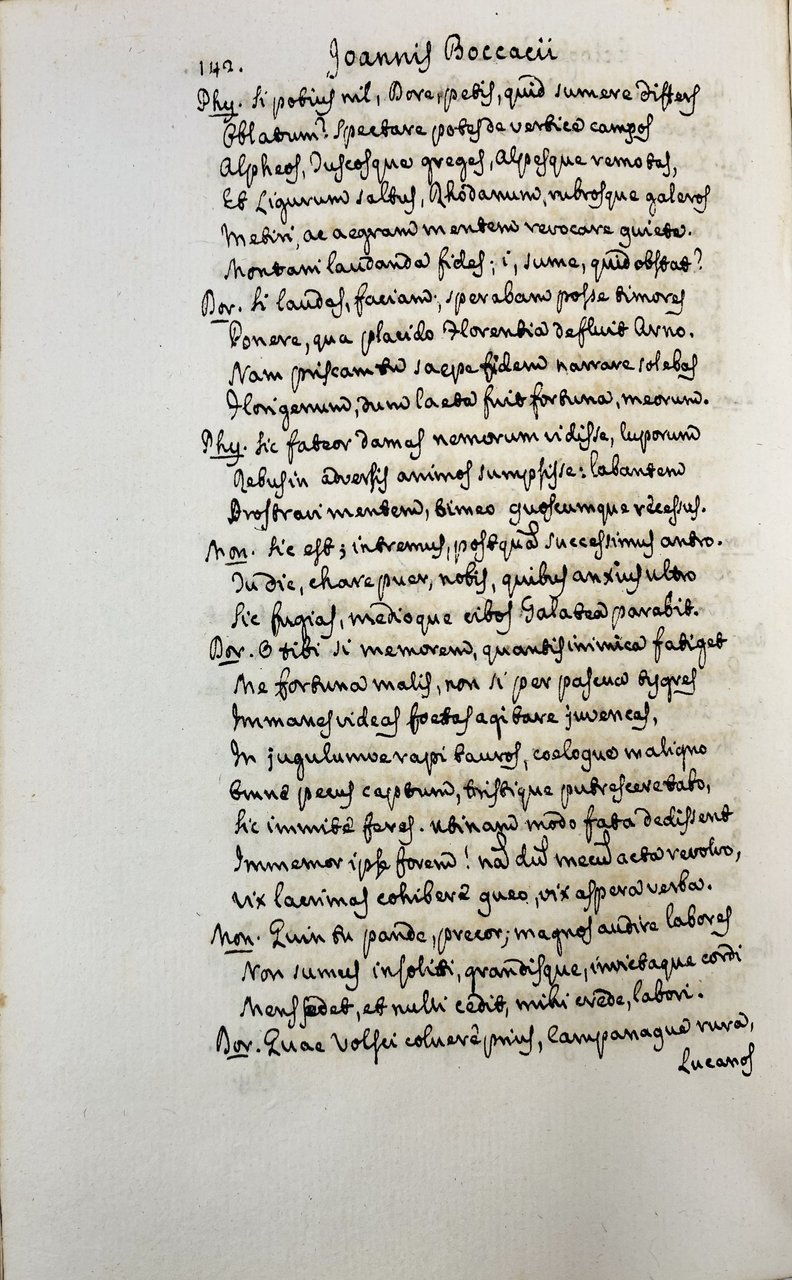 142. Joannis Boccacii
Phy. Si potius nil, Dore, petis, quid sumere differs
Oblatum? Spectare potes de vertice campos
Alpheos, Tuscosque greges, Alpesque remotas,
Et Ligurum saltus, Rhodanum, rubrosque galeros
Metiri, ac aegram mentem revocare quiete.
Montani laudanda fides; i, sume, quid obstat?
Dor. Si laudes, faciam; sperabam posse timores
Ponere, qua placido Florentia defluit Arno.
Nam priscam tu saepe fidem narrare solebas
Florigenum, dum laeta fuit fortuna, meorum.
Phy. Sic fateor damas nemorum vidisse, luporum
Rebus in adversis animos sumpsisse: labantem
Prostravi mentem, timeo quoscumque recessus.
Mon. Sic est; intremus, postquã successimus antro.
Tu dic, chare puer, nobis, quibus anxius ultro
Sic fugias, medioque cibos Galatea parabit.
Dor. O tibi si memorem, quantis inimica fatiget
Me fortuna malis, non si per pascua tygres
Immanes videas foetas agitare juvencas,
In jugulumve rapi tauros, coeloque maligno
Omne pecus captum, tristique putrescere tabo,
Sic immite feres. utinam modo fata dedissent
Immemor ipse forem! nã dũ mecũ acta revolvo,
Vix lacrimas cohibere queo, vix aspera verba.
Mon. Quin tu pande, precor; magnos audire labores
Non sumus insoliti, grandisque, invictaque cordi
Mens sedet, et nulli cedit, mihi crede, labori.
Dor. Quae Volsci coluere prius, Campanaque rura,
Lucanos